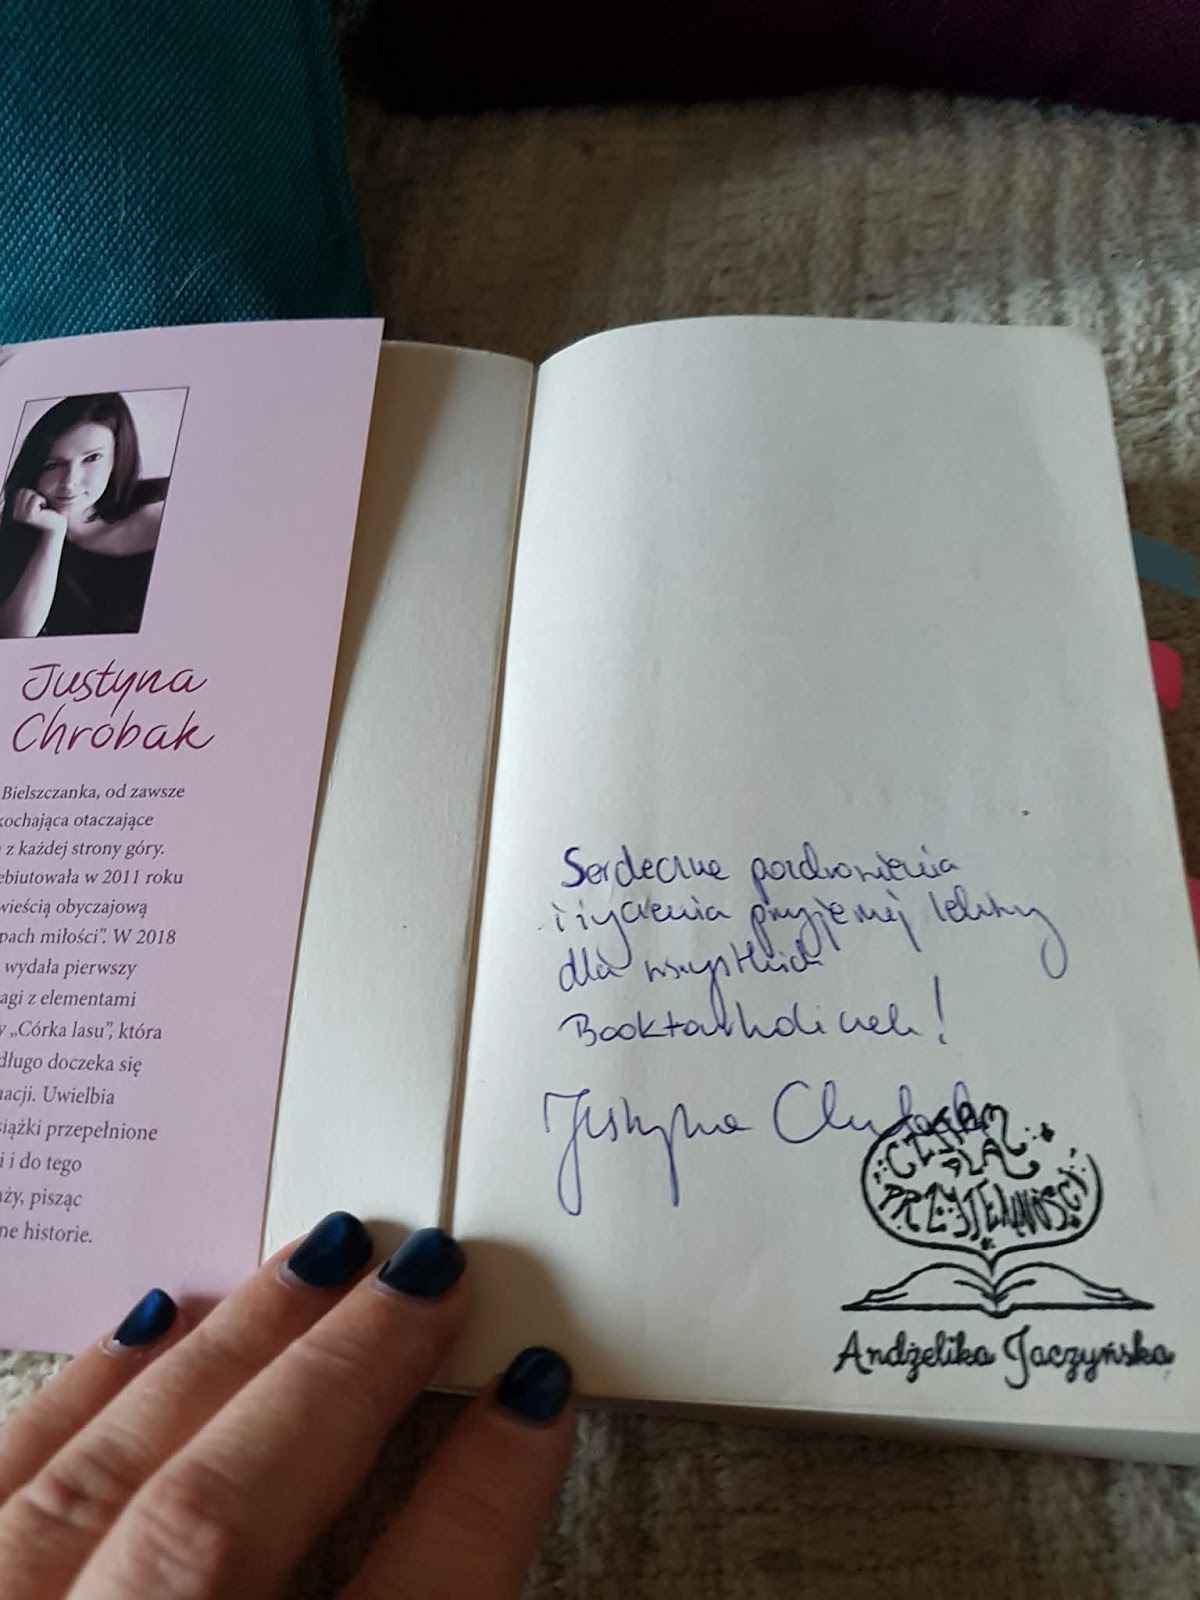 Justyna
Chrobak
Bielszczanka, od zawsze
kochająca otaczające
z każdej strony góry.
ebiutowała w 2011 roku
wieścią obyczajową
pach miłości”. W 2018
wydała pierwszy
agi z elementami
„Córka lasu”, która
długo doczeka się
uacji. Uwielbia
siążki przepełnione
i i do tego
ży, pisząc
ne historie.
Serdeczne pozdrowienia
i życzenia przyjemnej lektury
dla wszystkich
!
Justyna Chrobak
CZYTAM
DLA
PRZYJEMNOŚCI
Andżelika Jaczyńska